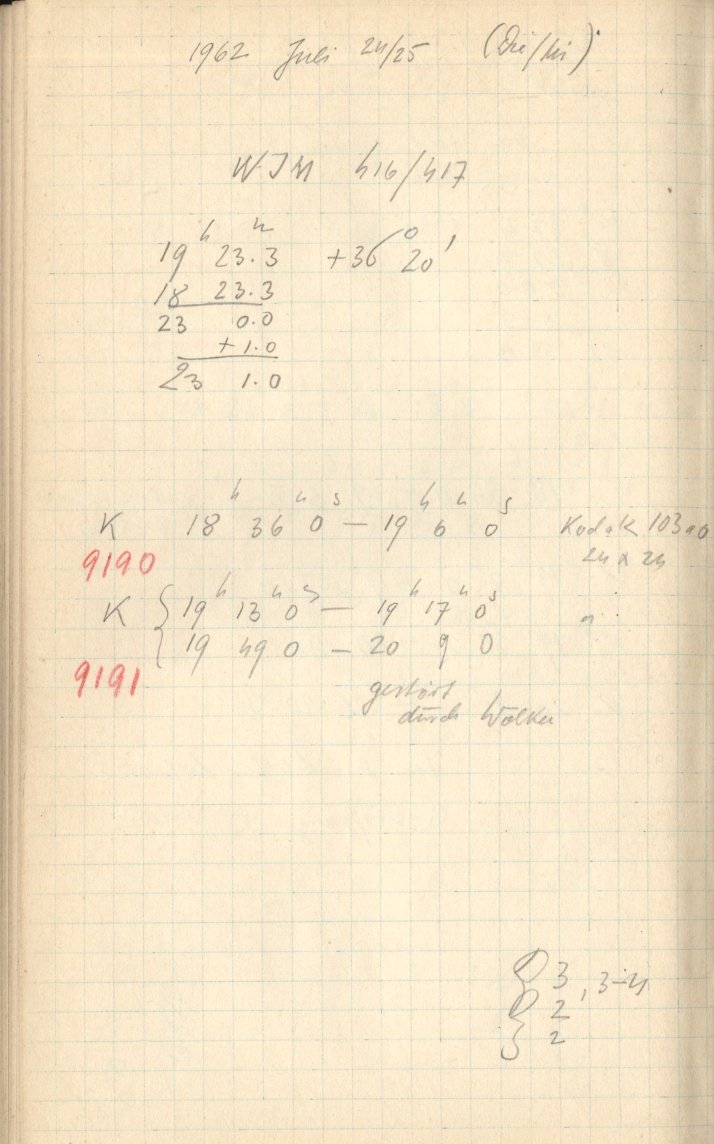 1962 Juli 24/25 (Di/Mi)
416/417
h m
19 23.3 +36° 20'
18 23.3
23 0.0
+ 1.0
23 1.0
K 18h 36m 0s — 19h 6m 0s Kodak 103a0
9190
24 x 24
K { 19h 13m 0s — 19h 17m 0s "
19 49 0 — 20 9 0
9191
gestört
durch Wolken
3
, 3-4
2
2